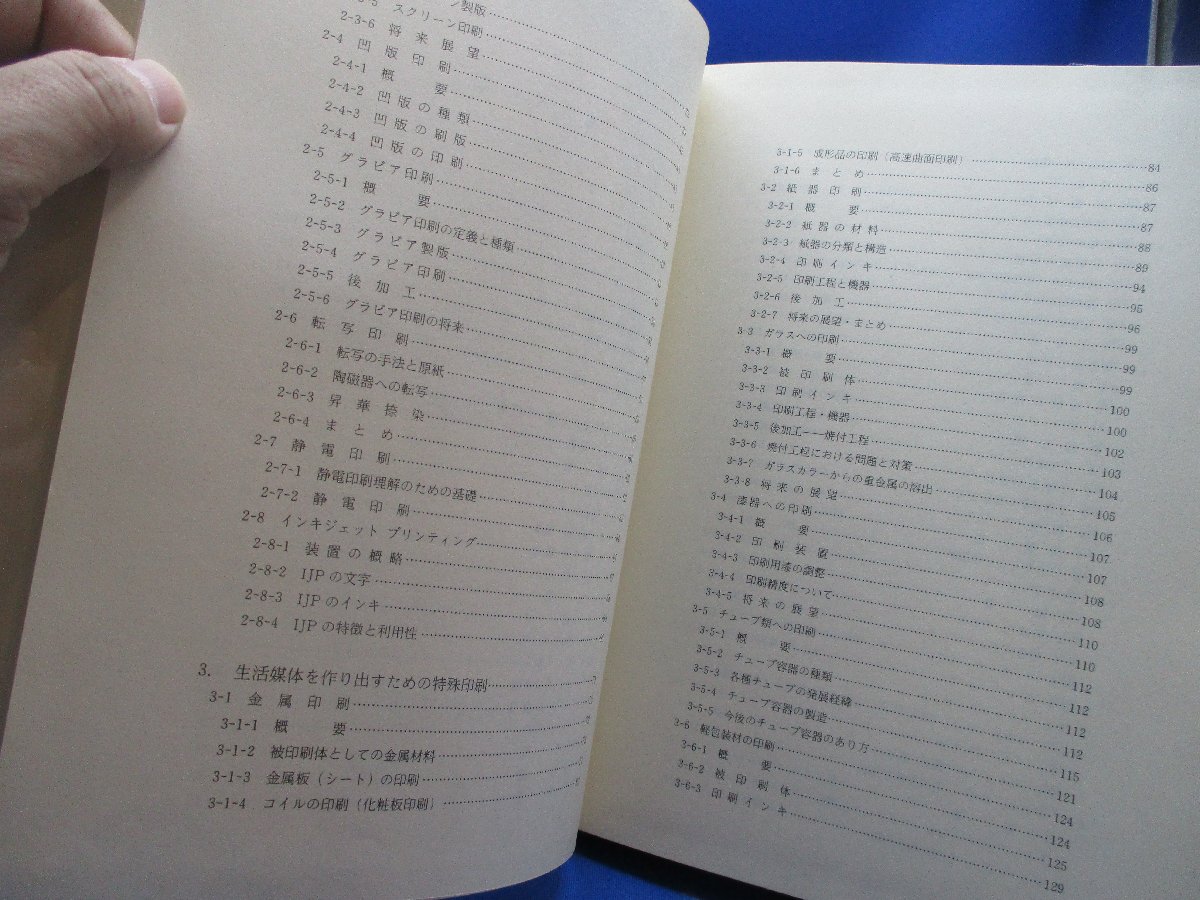 ン製版
2-3-5 スクリーン印刷
2-3-6 将来展望
2-4 凹版印刷
2-4-1 概要
2-4-2 凹版の種類
2-4-3 凹版の刷版
2-4-4 凹版の印刷
2-5 グラビア印刷
2-5-1 概要
2-5-2 グラビア印刷の定義と種類
2-5-3 グラビア製版
2-5-4 グラビア印刷
2-5-5 後加工
2-5-6 グラビア印刷の将来
2-6 転写印刷
2-6-1 転写の手法と原紙
2-6-2 陶磁器への転写
2-6-3 昇華捺染
2-6-4 まとめ
2-7 静電印刷
2-7-1 静電印刷理解のための基礎
2-7-2 静電印刷
2-8 インキジェット プリンティング
2-8-1 装置の概略
2-8-2 IJPの文字
2-8-3 IJPのインキ
2-8-4 IJPの特徴と利用性
3. 生活媒体を作り出すための特殊印刷
3-1 金属印刷
3-1-1 概要
3-1-2 被印刷体としての金属材料
3-1-3 金属板（シート）の印刷
3-1-4 コイルの印刷（化粧板印刷）
3-1-5 成形品の印刷（高速曲面印刷）84
3-1-6 まとめ 86
3-2 紙器印刷 87
3-2-1 概要 87
3-2-2 紙器の材料 88
3-2-3 紙器の分類と構造 89
3-2-4 印刷インキ 94
3-2-5 印刷工程と機器 95
3-2-6 後加工 96
3-2-7 将来の展望・まとめ 99
3-3 ガラスへの印刷 99
3-3-1 概要 99
3-3-2 被印刷体 100
3-3-3 印刷インキ 100
3-3-4 印刷工程・機器 102
3-3-5 後加工―――焼付工程 103
3-3-6 焼付工程における問題と対策 104
3-3-7 ガラスカラーからの重金属の溶出 105
3-3-8 将来の展望 106
3-4 漆器への印刷 107
3-4-1 概要 107
3-4-2 印刷装置 108
3-4-3 印刷用漆の調整 108
3-4-4 印刷精度について 110
3-4-5 将来の展望 110
3-5 チューブ類への印刷 112
3-5-1 概要 112
3-5-2 チューブ容器の種類 112
3-5-3 各種チューブの発展経緯 112
3-5-4 チューブ容器の製造 115
3-5-5 今後のチューブ容器のあり方 121
3-6 軽包装材の印刷 124
3-6-1 概要 124
3-6-2 被印刷体 125
3-6-3 印刷インキ 129